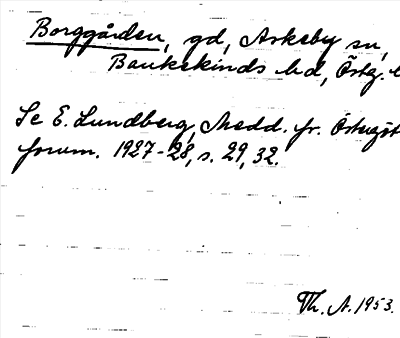 Borggården, gd, Askeby sn,
Bankekinds hd, Östg.
Se E. Lundberg, Medd. fr. Östergöt
fornm. 1927-28, s. 29, 32.
Th. A. 1953.